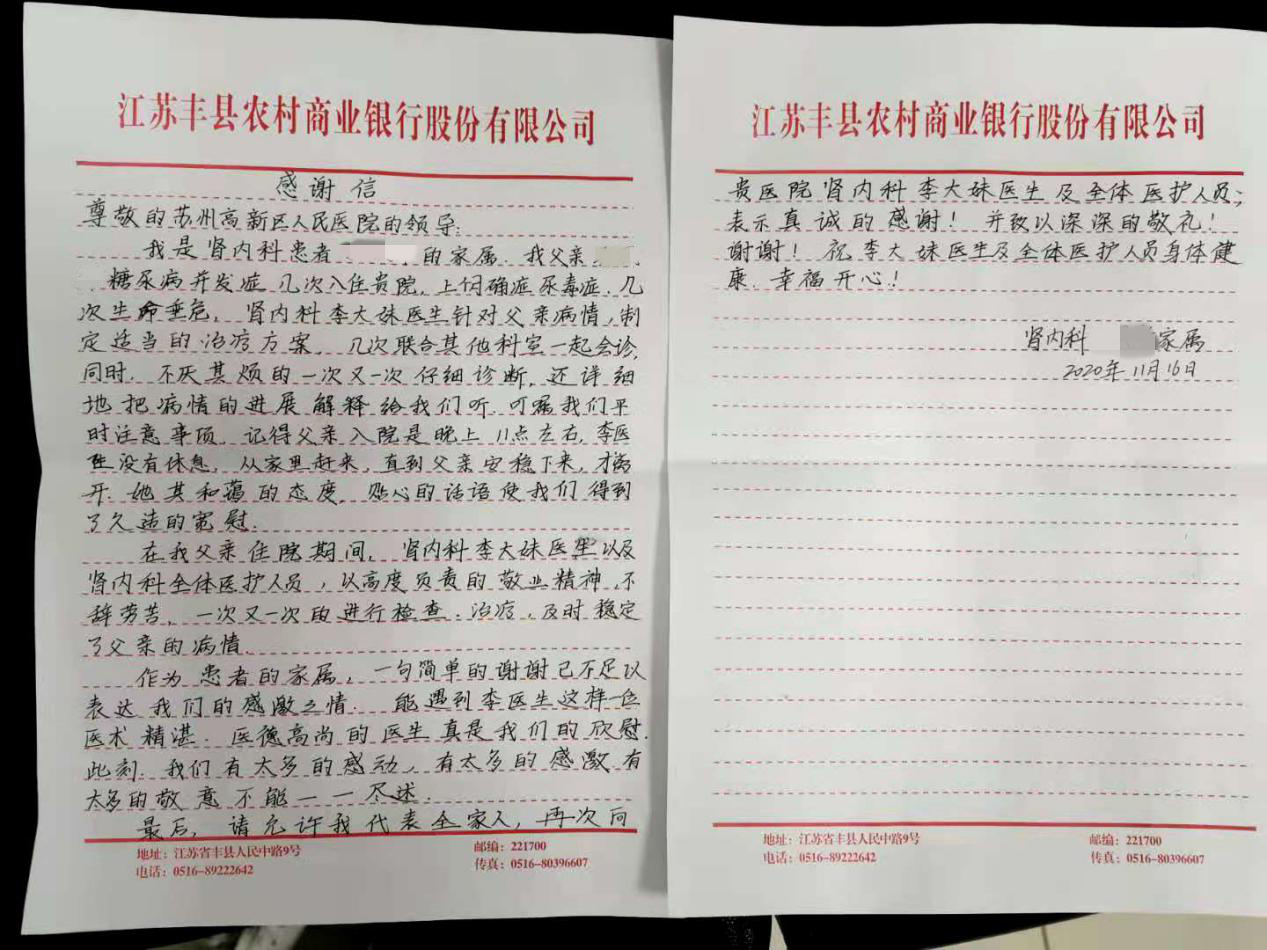 江苏丰县农村商业银行股份有限公司
感谢信
尊敬的苏州高新区人民医院的领导:
我是肾内科患者 的家属.我父亲
糖尿病并发症.几次入住贵院.上何确症尿毒症.几
次生命垂危.肾内科李大妹医生针对父亲病情,制
定适当的治疗方案.几次联合其他科室一起会诊,
同时.不厌其烦的一次又一次仔细诊断.还详细
地把病情的进展解释给我们听.叮嘱我们平
时注意事项.记得父亲入院是晚上11点左右.李医
生没有休息.从家里赶来,直到父亲安稳下来,才离
开.她其和蔼的态度.贴心的话语使我们得到
了久违的宽慰.
在我父亲住院期间.肾内科李大妹医生以及
肾内科全体医护人员,以高度负责的敬业精神,不
辞劳苦,一次又一次的进行检查.治疗,及时稳定
了父亲的病情.
作为患者的家属,一句简单的谢谢已不足以
表达我们的感激之情.能遇到李医生这样一位
医术精湛.医德高尚的医生真是我们的欣慰.
此刻.我们有太多的感动,有太多的感激有
太多的敬意不能一一尽述.
最后,请允许我代表全家人,再次向
地址:江苏省丰县人民中路9号
邮编:221700
电话:0516-89222642
传真:0516-80396607
江苏丰县农村商业银行股份有限公司
贵医院肾内科李大妹医生及全体医护人员;
表示真诚的感谢!并致以深深的敬礼!
谢谢!祝李大妹医生及全体医护人员身体健
康.幸福开心!
肾内科 家属
2020年11月16日
地址:江苏省丰县人民中路9号
邮编:221700
电话:0516-89222642
传真:0516-80396607